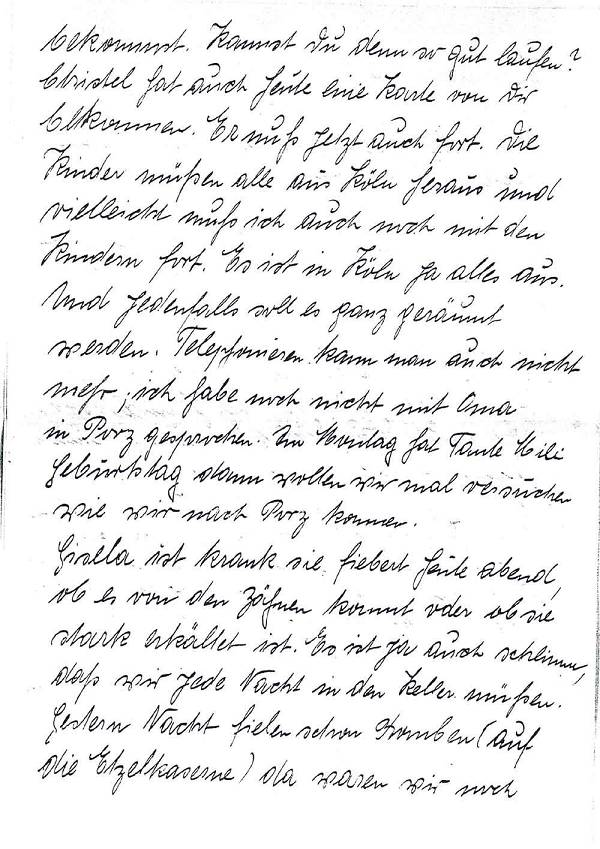 bekommst. Kannst du denn so gut laufen?
Christel hat auch heute eine Karte von Dir
bekommen. Er muß jetzt auch fort. Die
Kinder müßen alle aus Köln heraus und
vielleicht muß ich auch noch mit den
Kindern fort. Es ist in Köln ja alles aus.
Und jedenfalls soll es ganz geräumt
werden. Telephonieren kann man auch nicht
mehr, ich habe noch nicht mit Oma
in Porz gesprochen. Am Montag hat Tante Mili
Geburtstag dann wollen wir mal versuchen
wie wir nach Porz kommen.
Gisella ist krank sie fiebert heute abend,
ob es von den Zähnen kommt oder ob sie
stark erkältet ist. Es ist ja auch schlimm,
daß wir jede Nacht in den Keller müßen.
Gestern Nacht fielen schon Bomben (auf
die Etzelkaserne) da waren wir noch